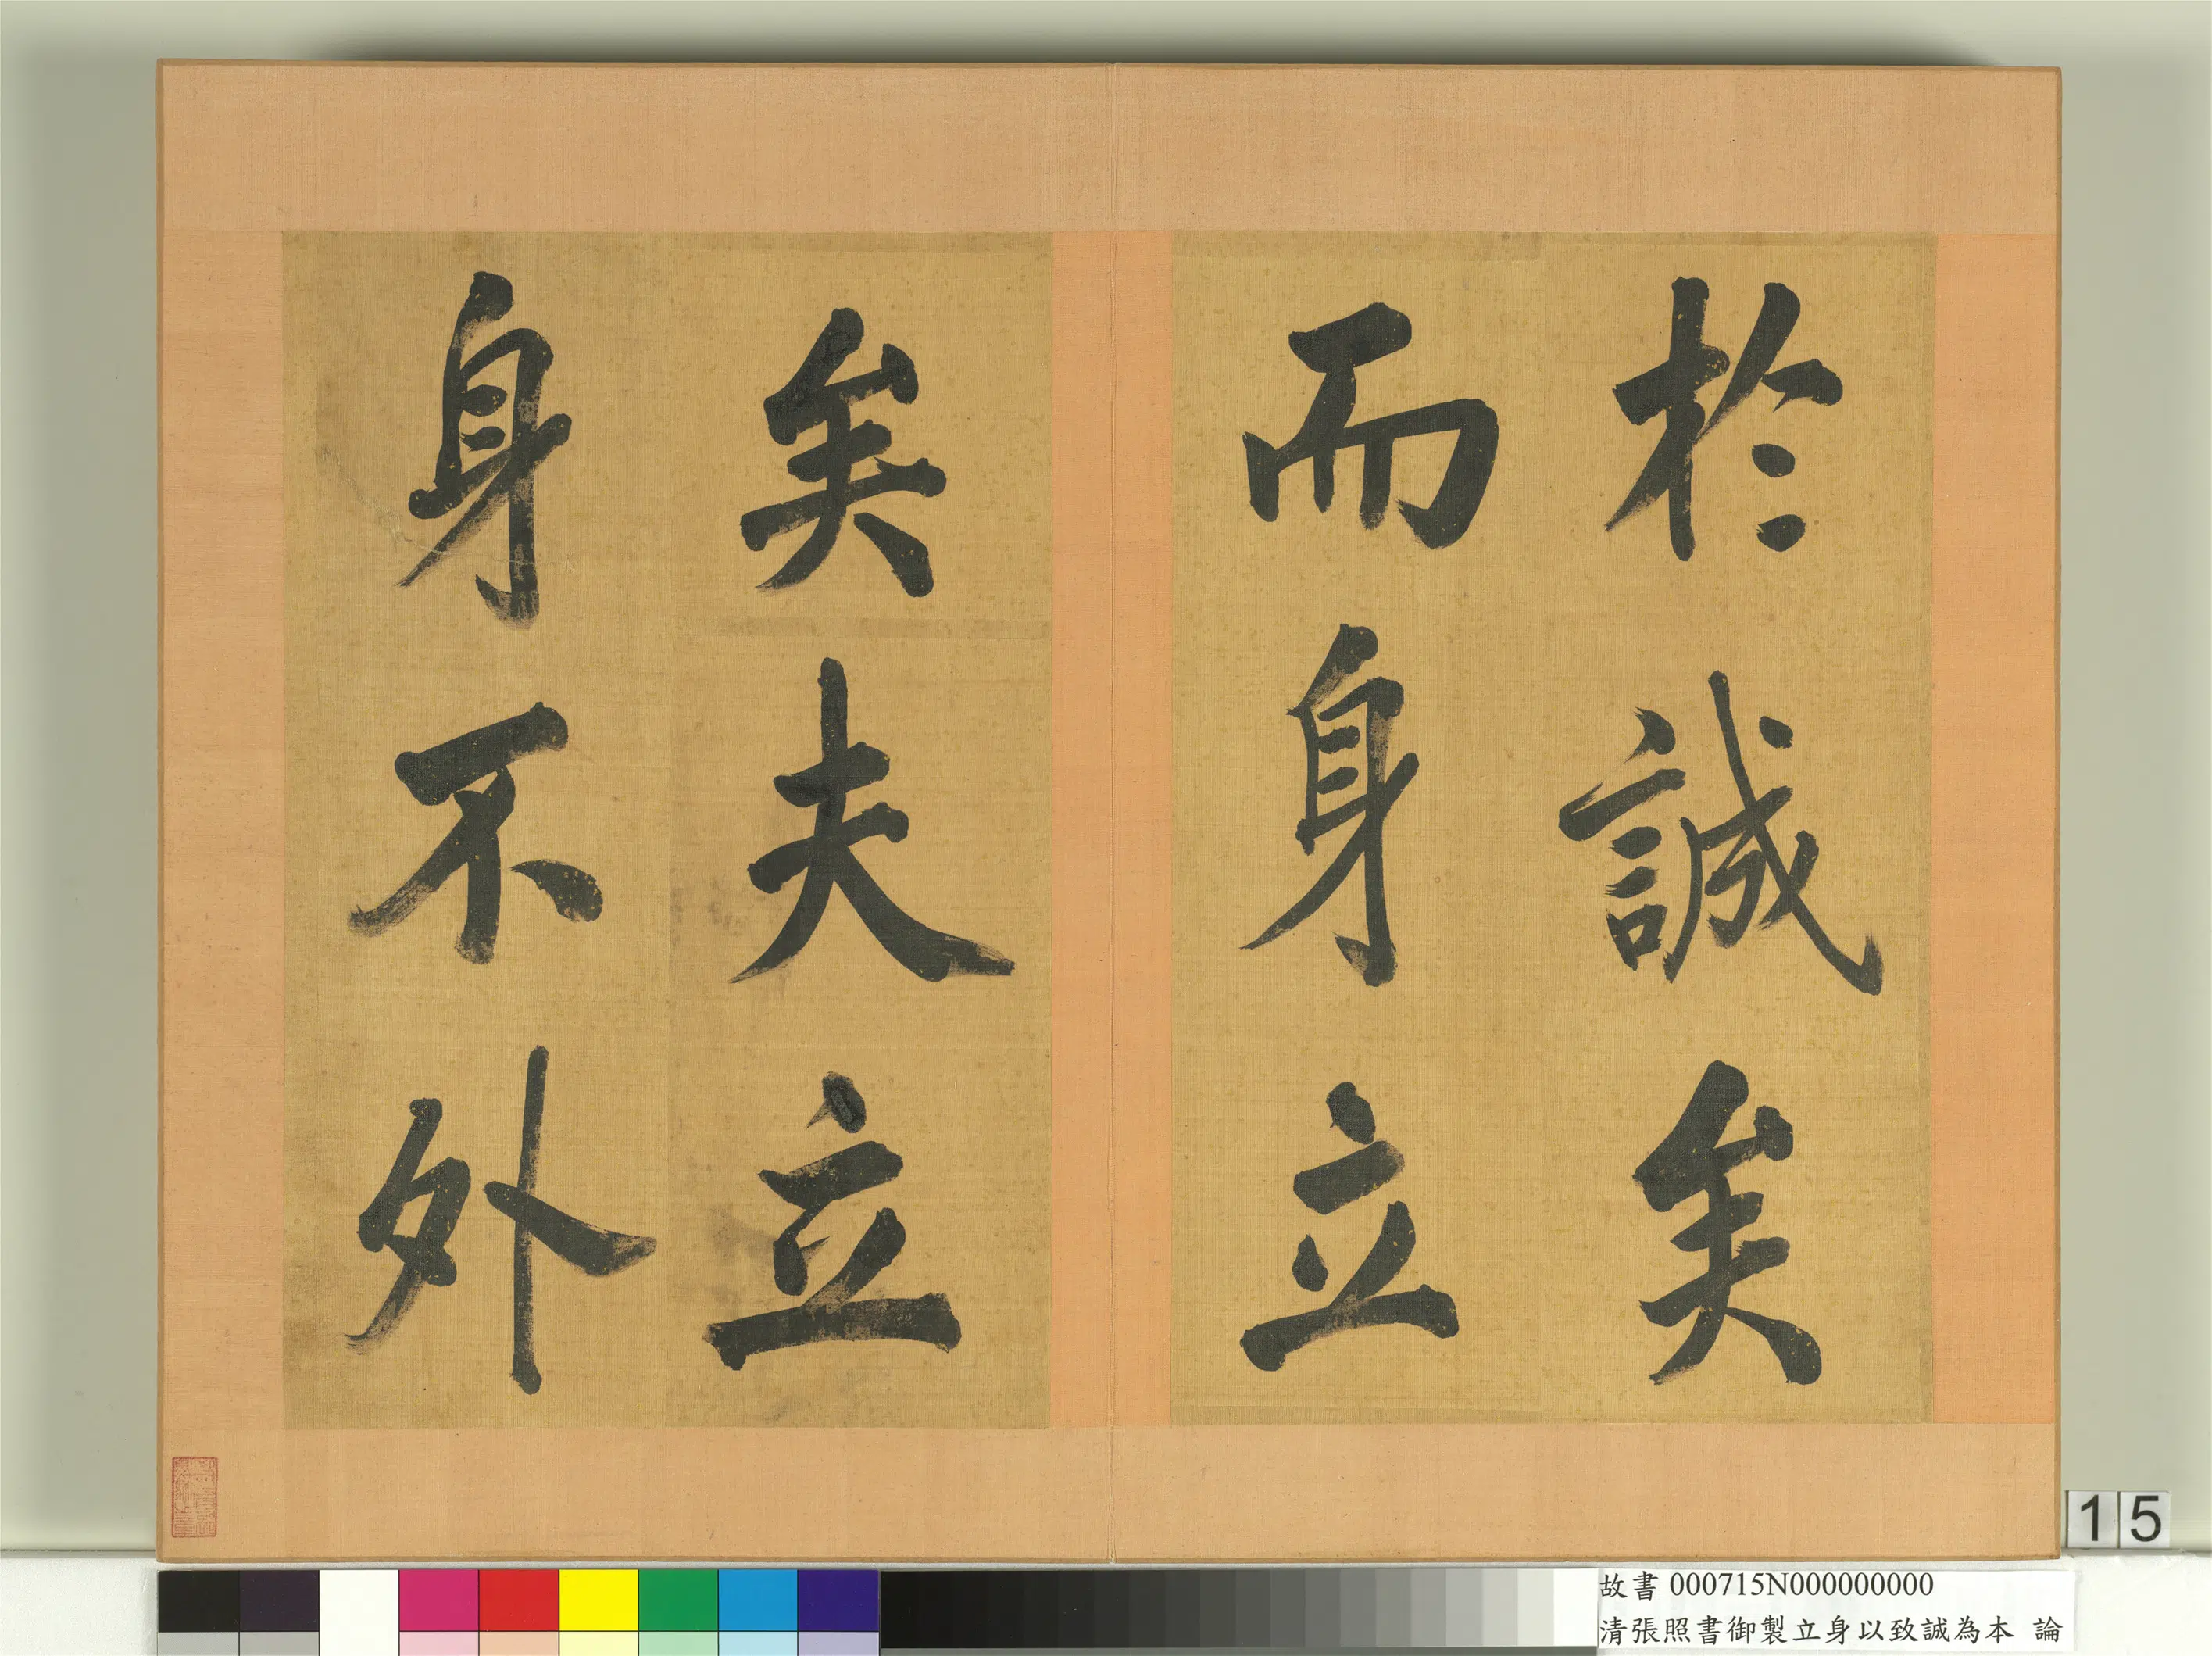 於誠矣
而身立
矣夫立
身不外
15
故書 000715N000000000
清張照書御製立身以致誠為本 論